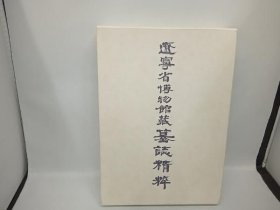 遼寧省博物館蔵墓誌精粋